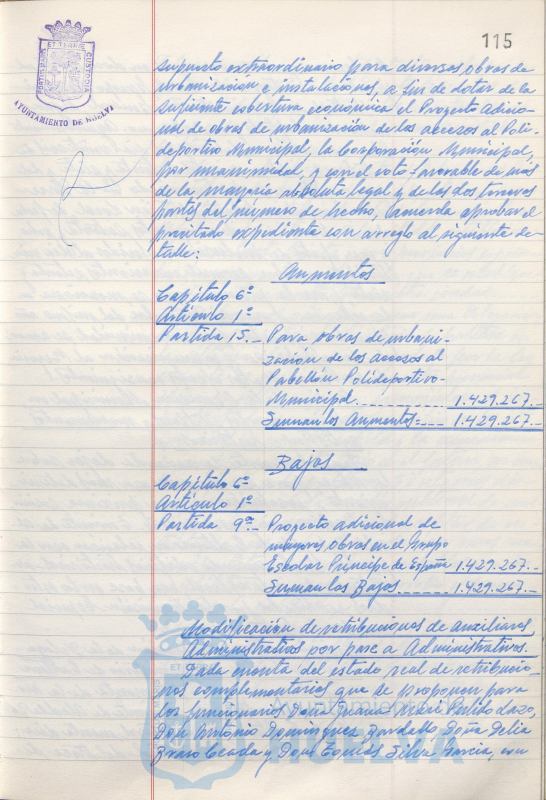 115
PORTUS MARIS ET TERRAE CUSTODIA
AYUNTAMIENTO DE HUELVA
supuesto extraordinario para diversas obras de
urbanización e instalaciones, a fin de dotar de la
suficiente cobertura económica el Proyecto Adicio-
nal de obras de urbanización de los accesos al Poli-
deportivo Municipal, la Corporación Municipal,
por unanimidad, y con el voto favorable de más
de la mayoría absoluta legal y de las dos terceras
partes del número de hecho, acuerda aprobar el
precitado expediente con arreglo al siguiente de-
talle:
Aumentos
Capítulo 6º
Artículo 1º
Partida 15.- Para obras de urbani-
zación de los accesos al
Pabellón Polideportivo
Municipal 1.429.267.-
Suman los Aumentos 1.429.267.-
Bajas
Capítulo 6º
Artículo 1º
Partida 9ª.- Proyecto adicional de
mayores obras en el Grupo
Escolar Príncipe de España 1.429.267.-
Suman las Bajas 1.429.267.-
Modificación de retribuciones de Auxiliares
Administrativos por pase a Administrativos.
Dada cuenta del estado real de retribucio-
nes complementarias que se proponen para
los funcionarios Doña Juana María Pulido Lazo,
Don Antonio Domínguez Bardallo, Doña Delia
Bravo y Don Tomás Silva García, con